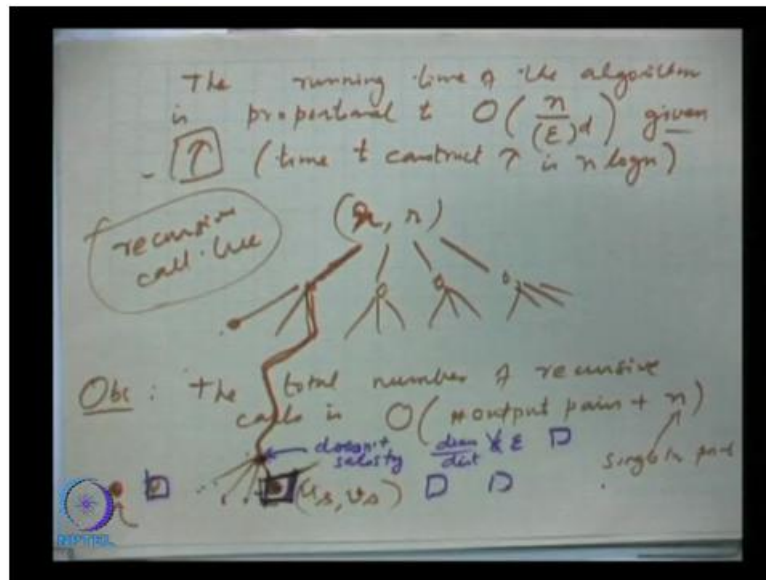 The running time of the algorithm
is proportional to O(n/(ε)^d) given
- T (time to construct T is n log n)
recursive
call tree
(r, r)
Obs: The total number of recursive
calls is O(#output pairs + n)
doesn't
satisfy
diam/dist ≤ ε
singleton pairs
(us, vs)
NPTEL